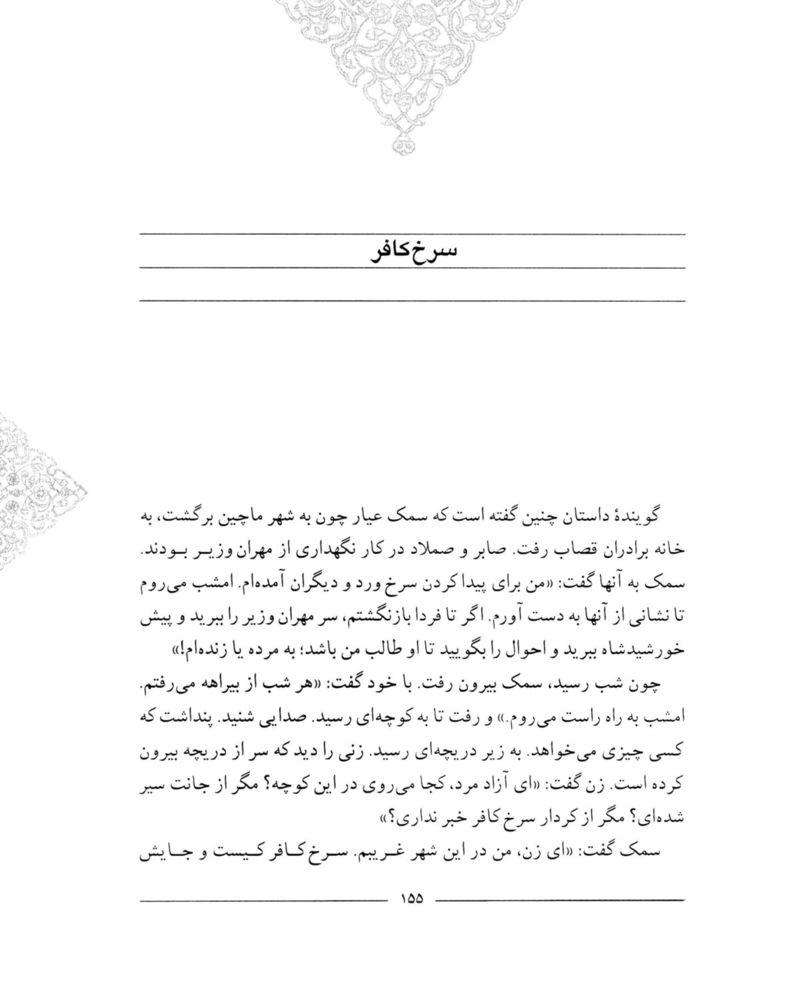 سرخ‌کافر
گویندهٔ داستان چنین گفته است که سمک عیار چون به شهر ماچین برگشت، به
خانه برادران قصاب رفت. صابر و صملاد در کار نگهداری از مهران وزیر بودند.
سمک به آنها گفت: «من برای پیدا کردن سرخ ورد و دیگران آمده‌ام. امشب می‌روم
تا نشانی از آنها به دست آورم. اگر تا فردا بازنگشتم، سر مهران وزیر را ببرید و پیش
خورشیدشاه ببرید و احوال را بگویید تا او طالب من باشد؛ به مرده یا زنده‌ام!»
چون شب رسید، سمک بیرون رفت. با خود گفت: «هر شب از بیراهه می‌رفتم.
امشب به راه راست می‌روم.» و رفت تا به کوچه‌ای رسید. صدایی شنید. پنداشت که
کسی چیزی می‌خواهد. به زیر دریچه‌ای رسید. زنی را دید که سر از دریچه بیرون
کرده است. زن گفت: «ای آزاد مرد، کجا می‌روی در این کوچه؟ مگر از جانت سیر
شده‌ای؟ مگر از کردار سرخ‌کافر خبر نداری؟»
سمک گفت: «ای زن، من در این شهر غریبم. سرخ‌کافر کیست و جایش
۱۵۵